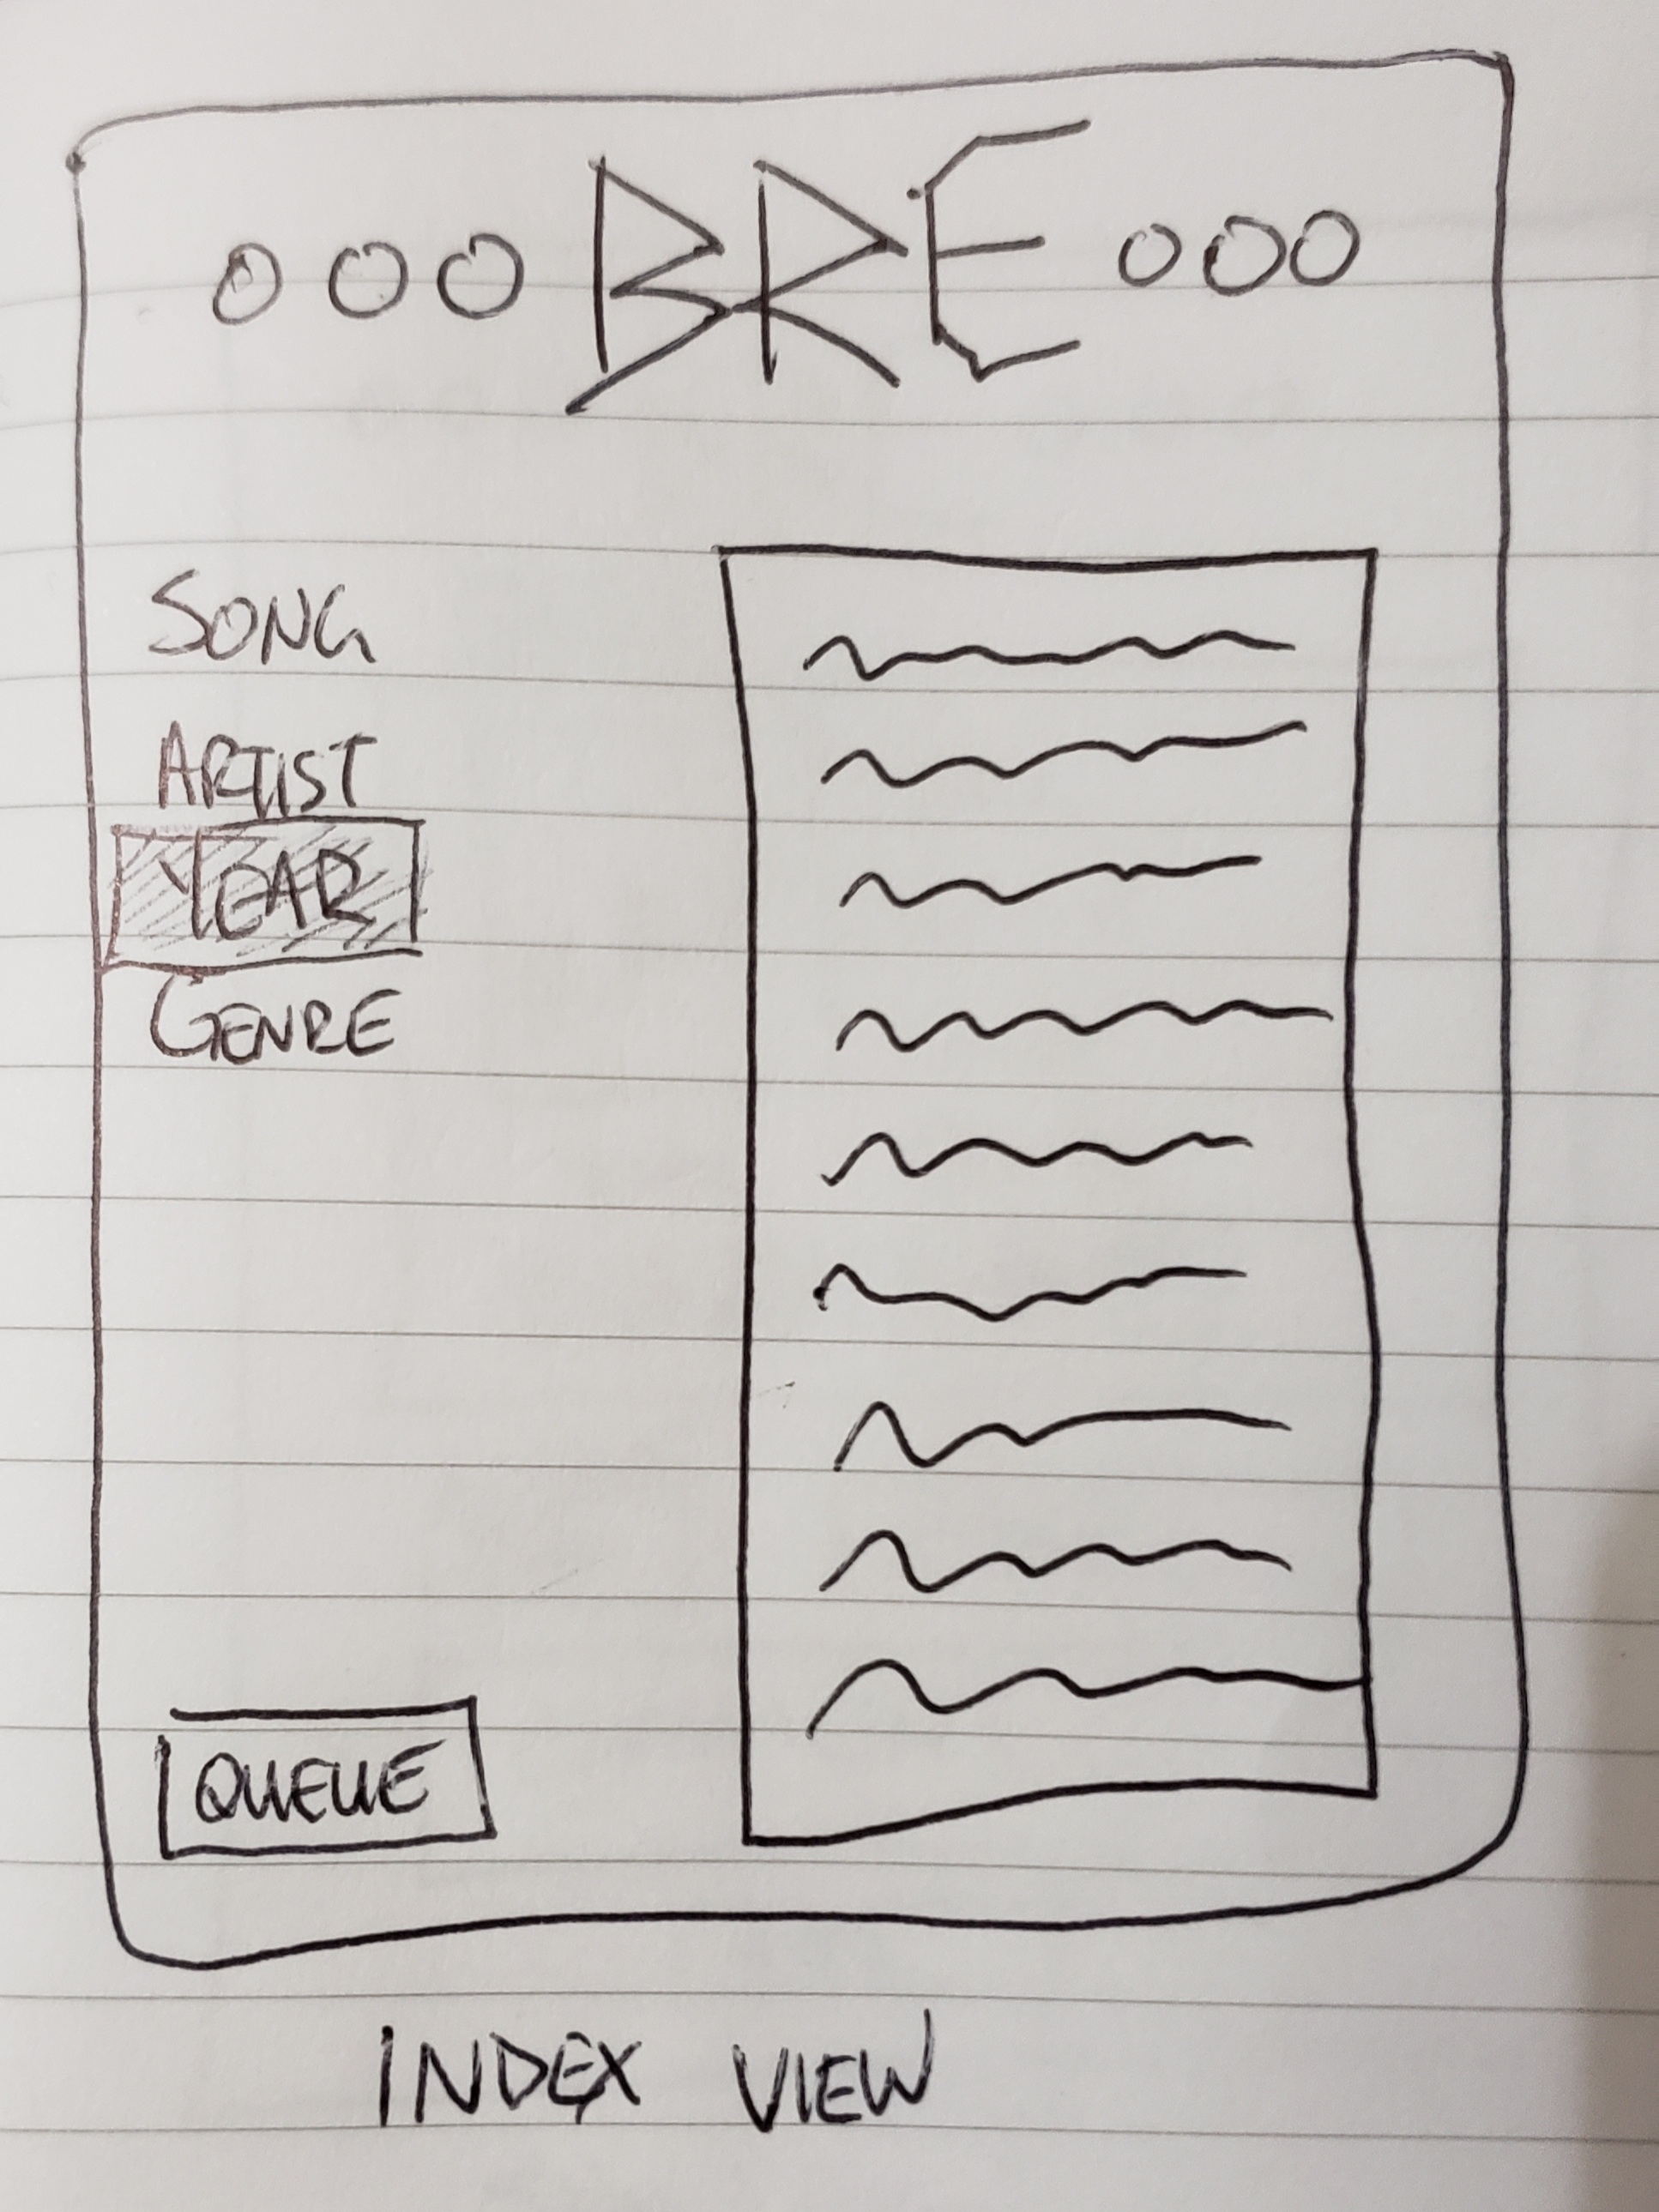 ooo BRE ooo
SONG
ARTIST
YEAR
GENRE
QUEUE
INDEX VIEW